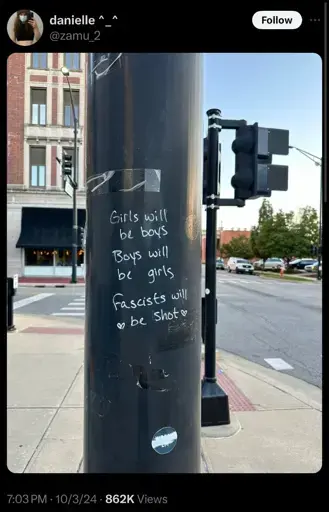 danielle ^_^
@zamu_2
Follow
Girls will
be boys
Boys will
be girls
fascists will
be shot
7:03 PM · 10/3/24 · 862K Views